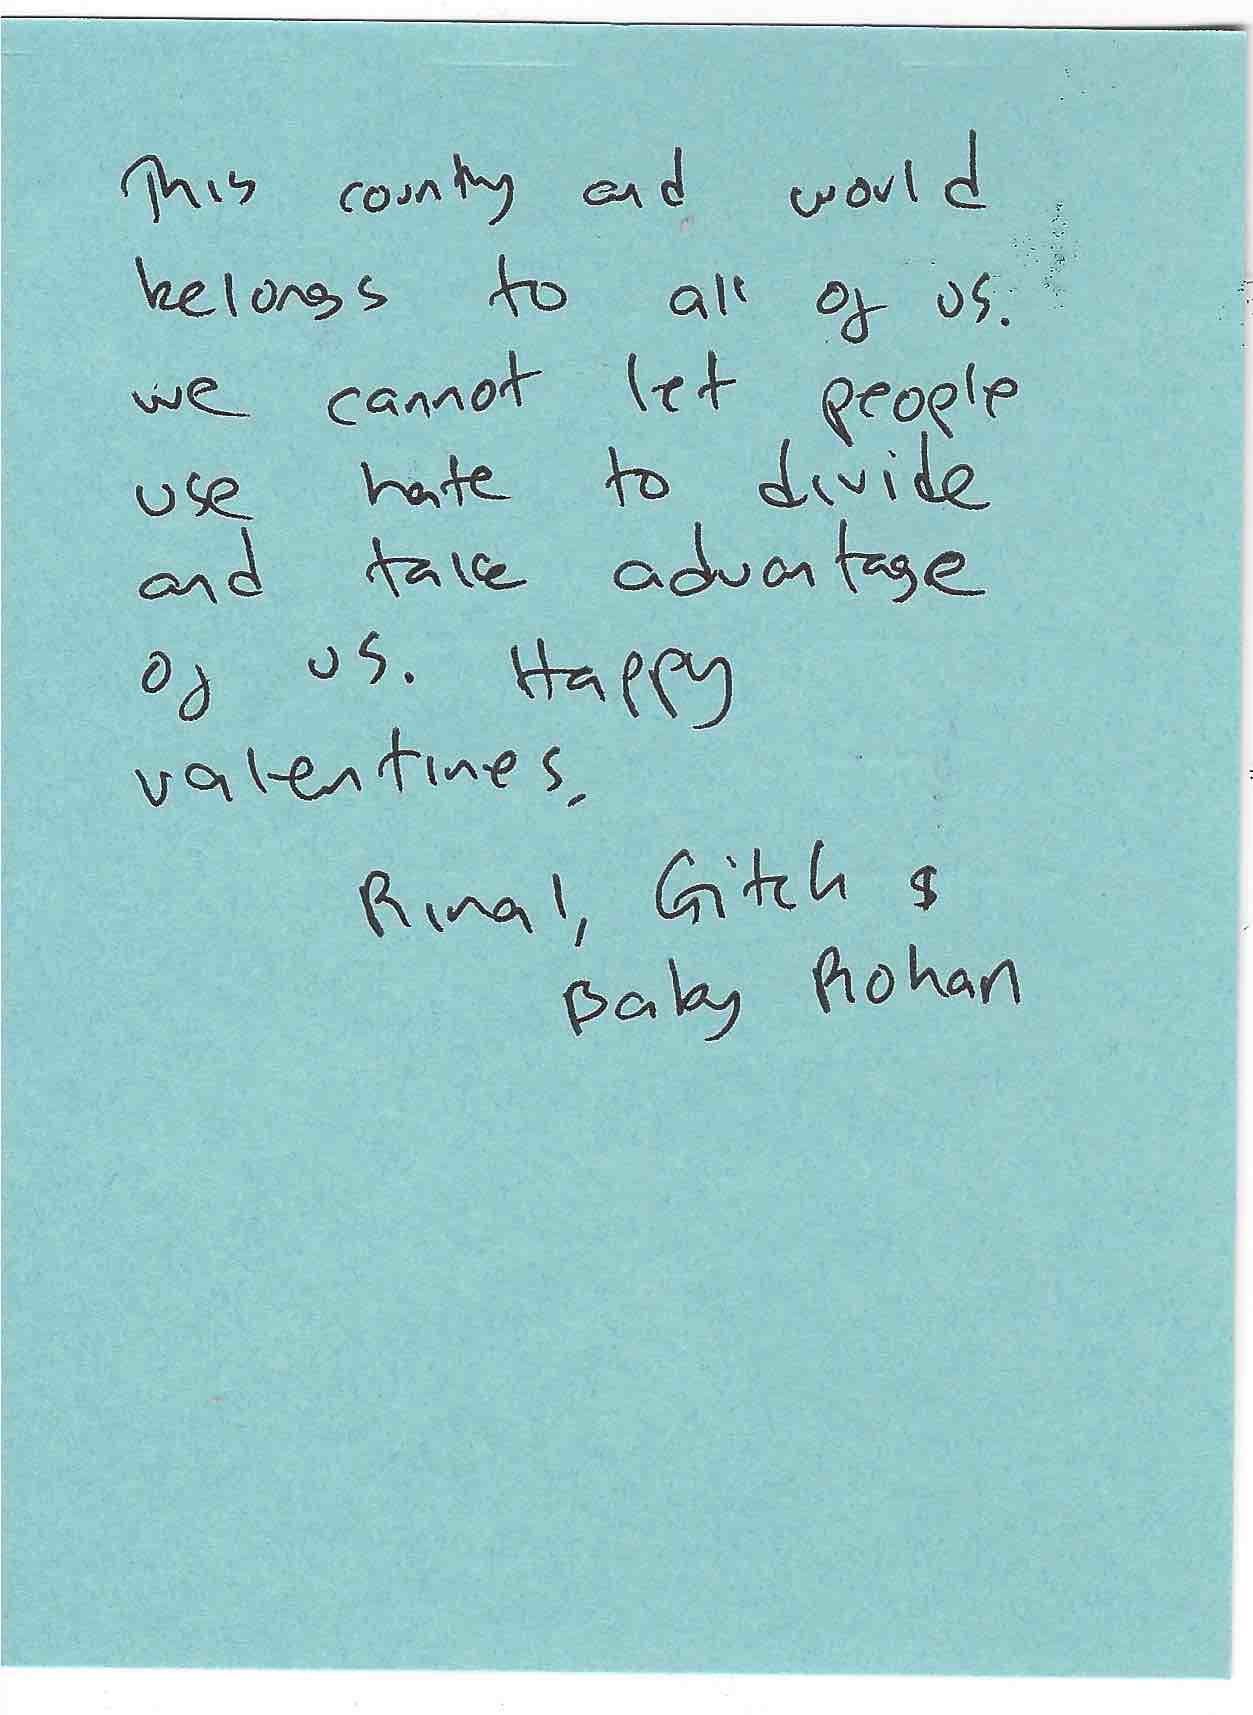 This country and world
belongs to all of us.
we cannot let people
use hate to divide
and take advantage
of us. Happy
valentines,
Rinal, Gitch &
Baby Rohan